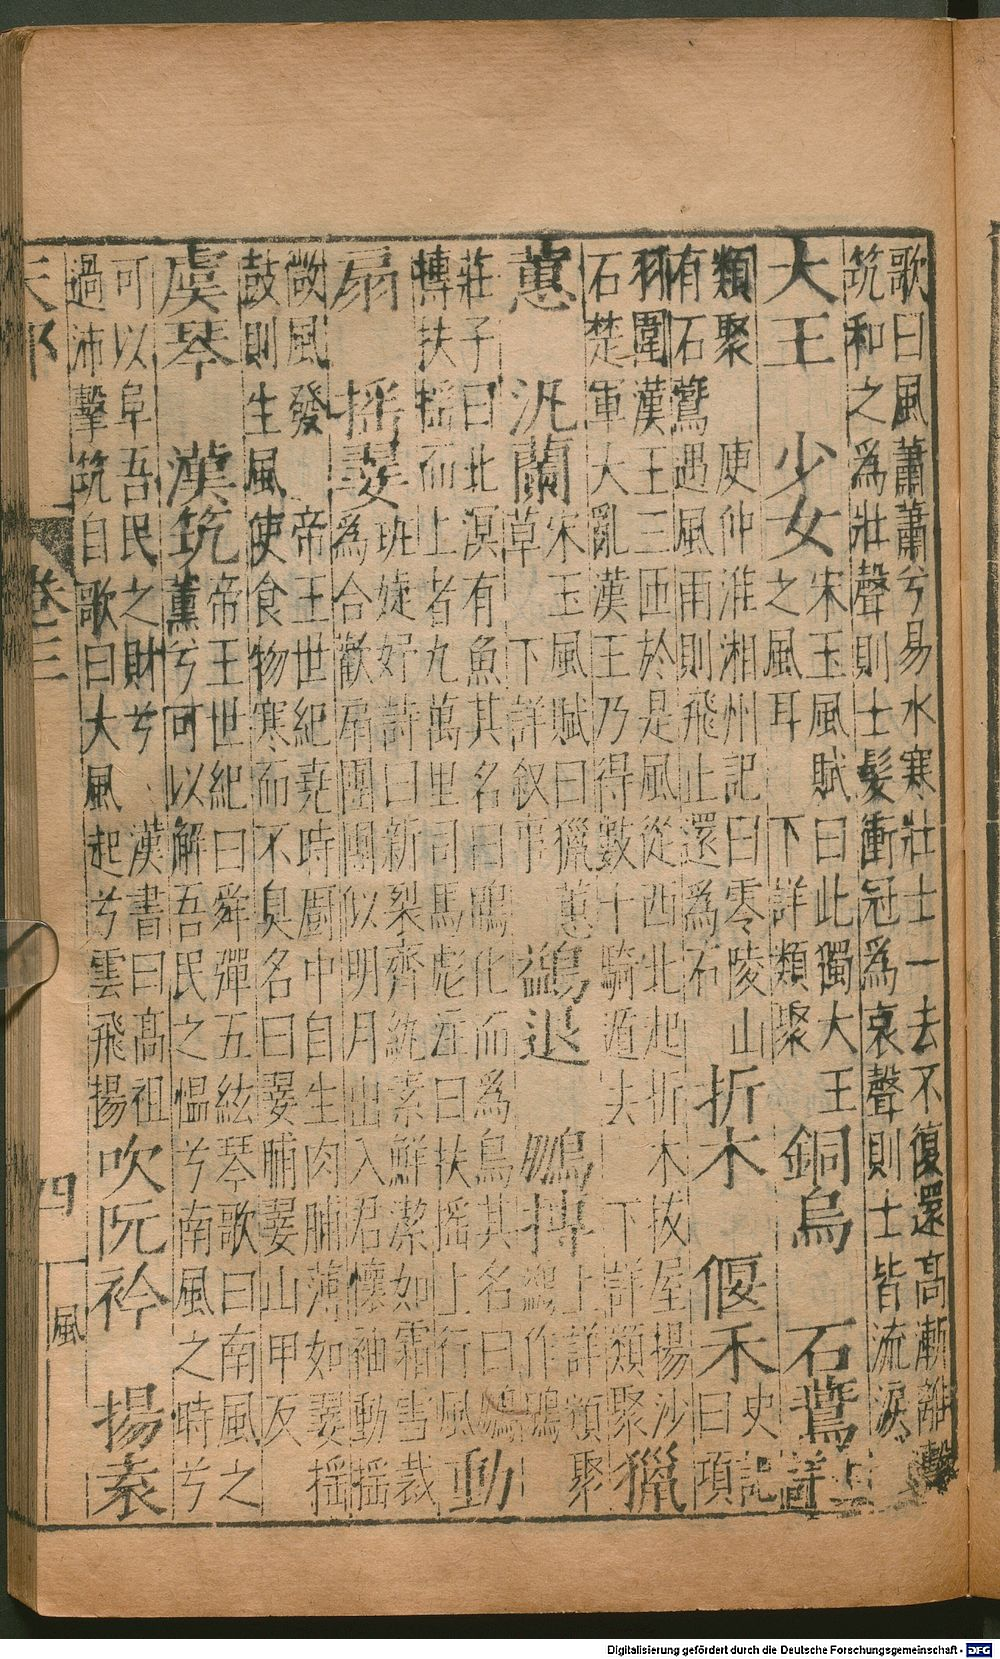 歌曰風蕭蕭兮易水寒壯士一去不復還高漸離擊
筑和之爲壯聲則士髮衝冠爲哀聲則士皆流涙
大王 少女 宋玉風賦曰此獨大王
之風耳 下詳類聚
銅烏 石鷰 上詳
類聚 庾仲淮湘州記曰零陵山
有石鷰遇風雨則飛止還爲石
折木 偃禾 史記
曰項
羽圍漢王三匝於是風從西北起折木拔屋揚沙
石楚軍大亂漢王乃得數十騎遁去 下詳類聚
獵
蕙 汎蘭 宋玉風賦曰獵蕙
草 下詳叙事
鷁退 鵰摶 上詳類聚
鷁作鶂
莊子曰北溟有魚其名曰鵾化而爲鳥其名曰鵰
摶扶搖而上者九萬里司馬彪注曰扶搖上行風
動
扇 搖翣 班婕妤詩曰新裂齊紈素鮮潔如霜雪裁
爲合歡扇團團似明月出入君懷袖動搖
微風發 帝王世紀堯時厨中自生肉脯薄如翣搖
鼓則生風使食物寒而不臭名曰翣脯翣山甲反
虞琴 漢筑 帝王世紀曰舜彈五絃琴歌曰南風之
薰兮可以解吾民之愠兮南風之時兮
可以阜吾民之財兮 漢書曰高祖
過沛擊筑自歌曰大風起兮雲飛揚
吹阮衿 揚袁
天部 卷三 四 風
Digitalisierung gefördert durch die Deutsche Forschungsgemeinschaft - DFG